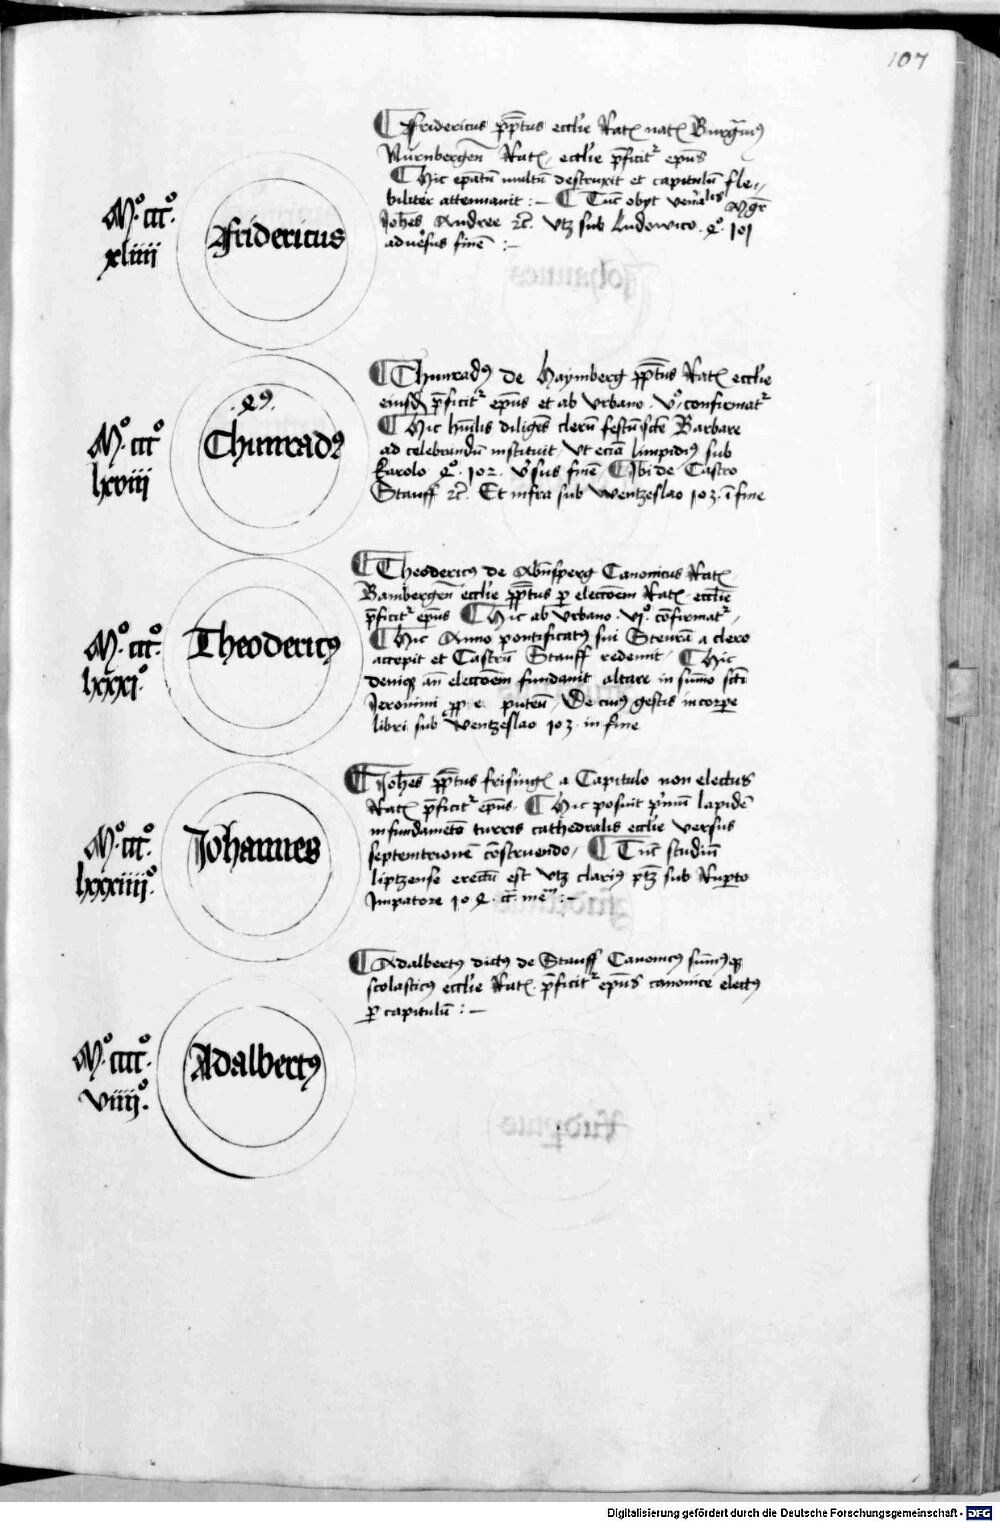 107
Fridericus p̄p̄tus eccl'ie Rat. nat. Burg̃uiꝰ
Nurnbergeñ Rat. eccl'ie p̄ficit᷑ ep̄us
Hic ep̄atū multū destruxit et capitulū flei⸗
biliter attenuauit :— Tūc obyt ven̄alis
Joh̄es Andree ⁊c̄. vtz sub Ludowico
aduersus finē :—
M.° ccc.°
xliiii
Fridericus
Chunradꝰ de Haymberg p̄p̄tus Rat. eccl'ie
eiusdē p̄ficit᷑ ep̄us et ab vrbano . v.° confirmat᷑
Hic hūilis diligēs clerū festū sc̄te Barbare
ad celebrandū instituit, vt eciā limpidiꝰ sub
Karolo 102. v̄sus finē Ibi de Castro
Stauff ⁊c̄. Et infra sub wentzeslao 103. ī fine
M.° ccc°
lxviii
Chunradꝰ
Theodericꝰ de Abūsperg Canonicus Rat.
Bambergeñ eccl'ie p̄p̄tus ꝑ eleccōem Rat. eccl'ie
p̄ficit᷑ ep̄us Hic ab vrbano . vj.° cōfirmat᷑
Hic Anno pontificatꝰ sui Steurā a clero
accepit et Castrū Stauff redemit, Hic
deniqꝫ an̄ eleccōem fundauit altare in sūmo sc̄ti
Jeronimi ꝓꝑe puteū, De cuiꝰ gestis in corꝑe
libri sub wentzeslao 103. in fine
M.° ccc.°
lxxxi.°
Theodericꝰ
Joh̄es p̄p̄tus frising. a Capitulo non electus
Rat. p̄ficit᷑ ep̄us. Hic posuit p̄mū lapidē
in fundamēto turris cathedralis eccl'ie versus
septemtrionē cōstruendo, Tūc studiū
liptzense erectū est vtz clariꝰ ptꝫ sub Ruꝑto
Impatore
M.° ccc.°
lxxxiiii.°
Johannes
Adalbertꝰ dictꝰ de Stauff Canonicꝰ sūmꝰqꝫ
scolasticꝰ eccl'ie Rat. p̄ficit᷑ ep̄us canonice electꝰ
ꝑ capitulū :—
M.° cccc.°
viiii.°
Adalbertꝰ
Digitalisierung gefördert durch die Deutsche Forschungsgemeinschaft - DFG